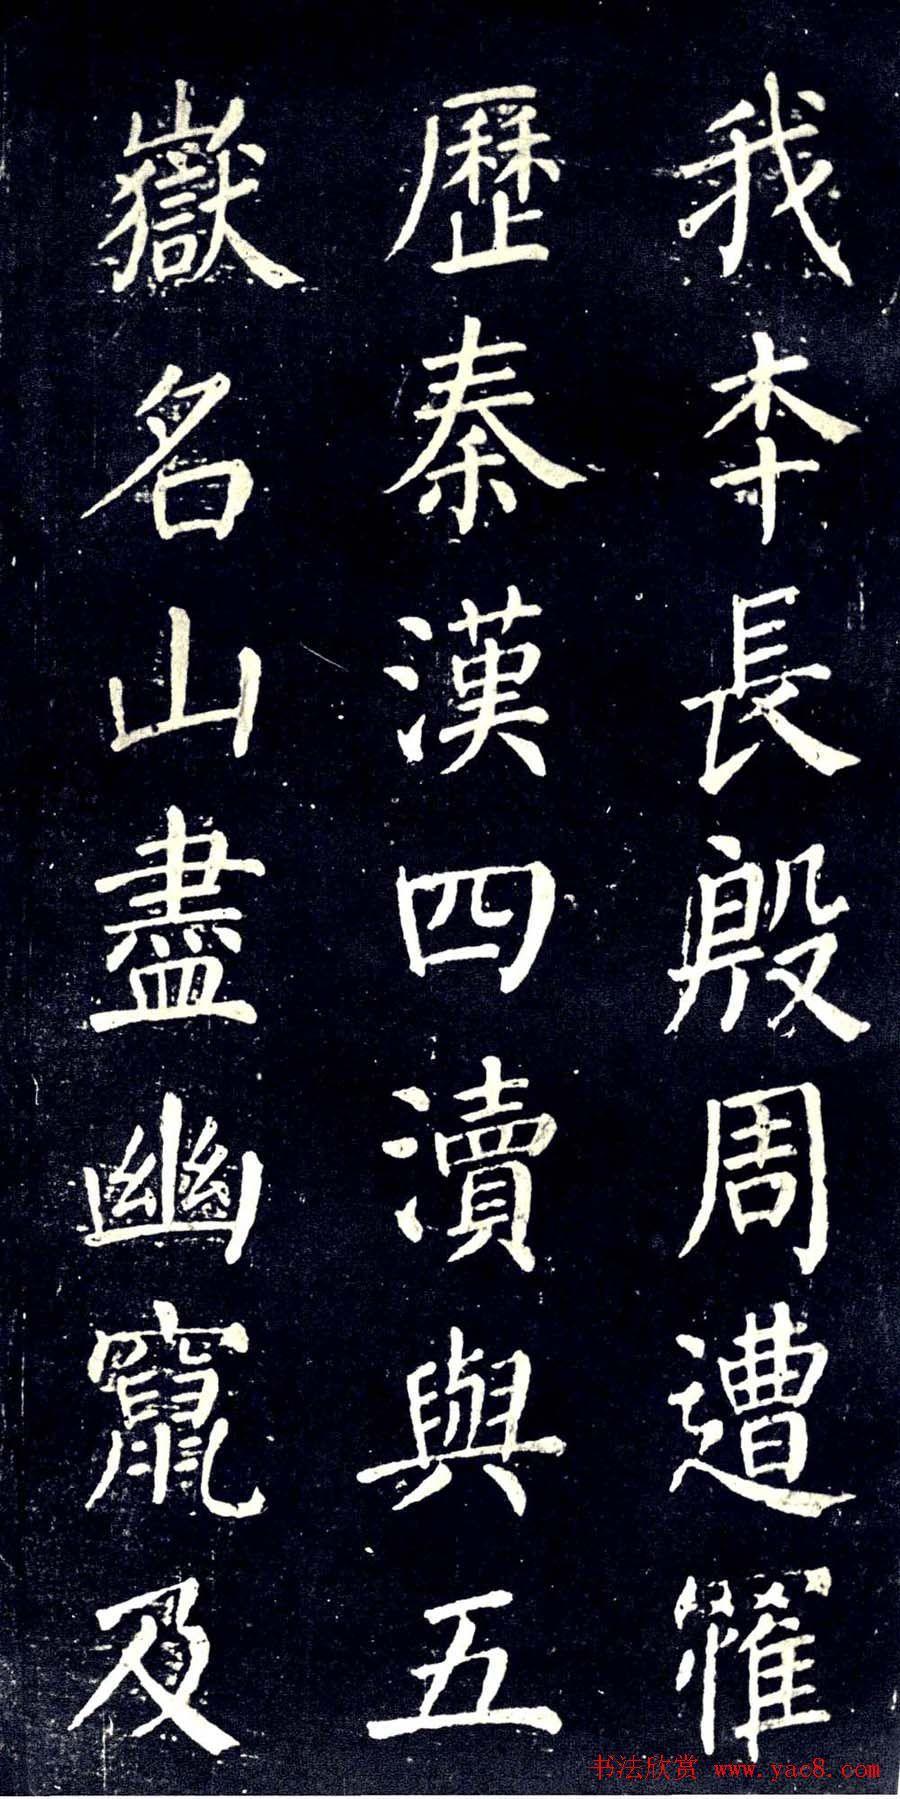 我本長殷周遭罹
歷秦漢四瀆與五
嶽名山盡幽竄及
书法欣赏 www.yac8.com